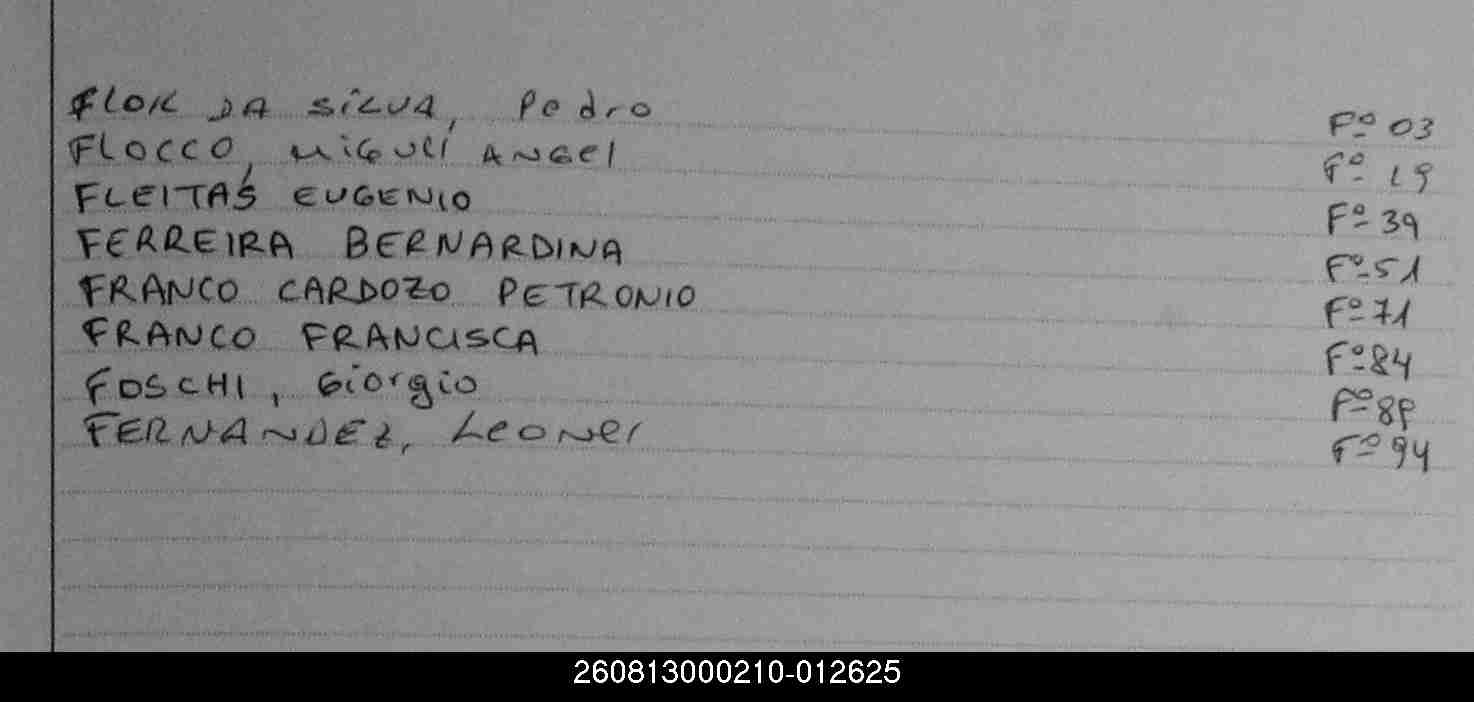 FLOR DA SILVA, Pedro Fº 03
FLOCCO, Miguel Angel Fº 19
FLEITAS EUGENIO Fº 39
FERREIRA BERNARDINA Fº 51
FRANCO CARDOZO PETRONIO Fº 71
FRANCO FRANCISCA Fº 84
FOSCHI, Giorgio Fº 89
FERNANDEZ, Leonel Fº 94
260813000210-012625